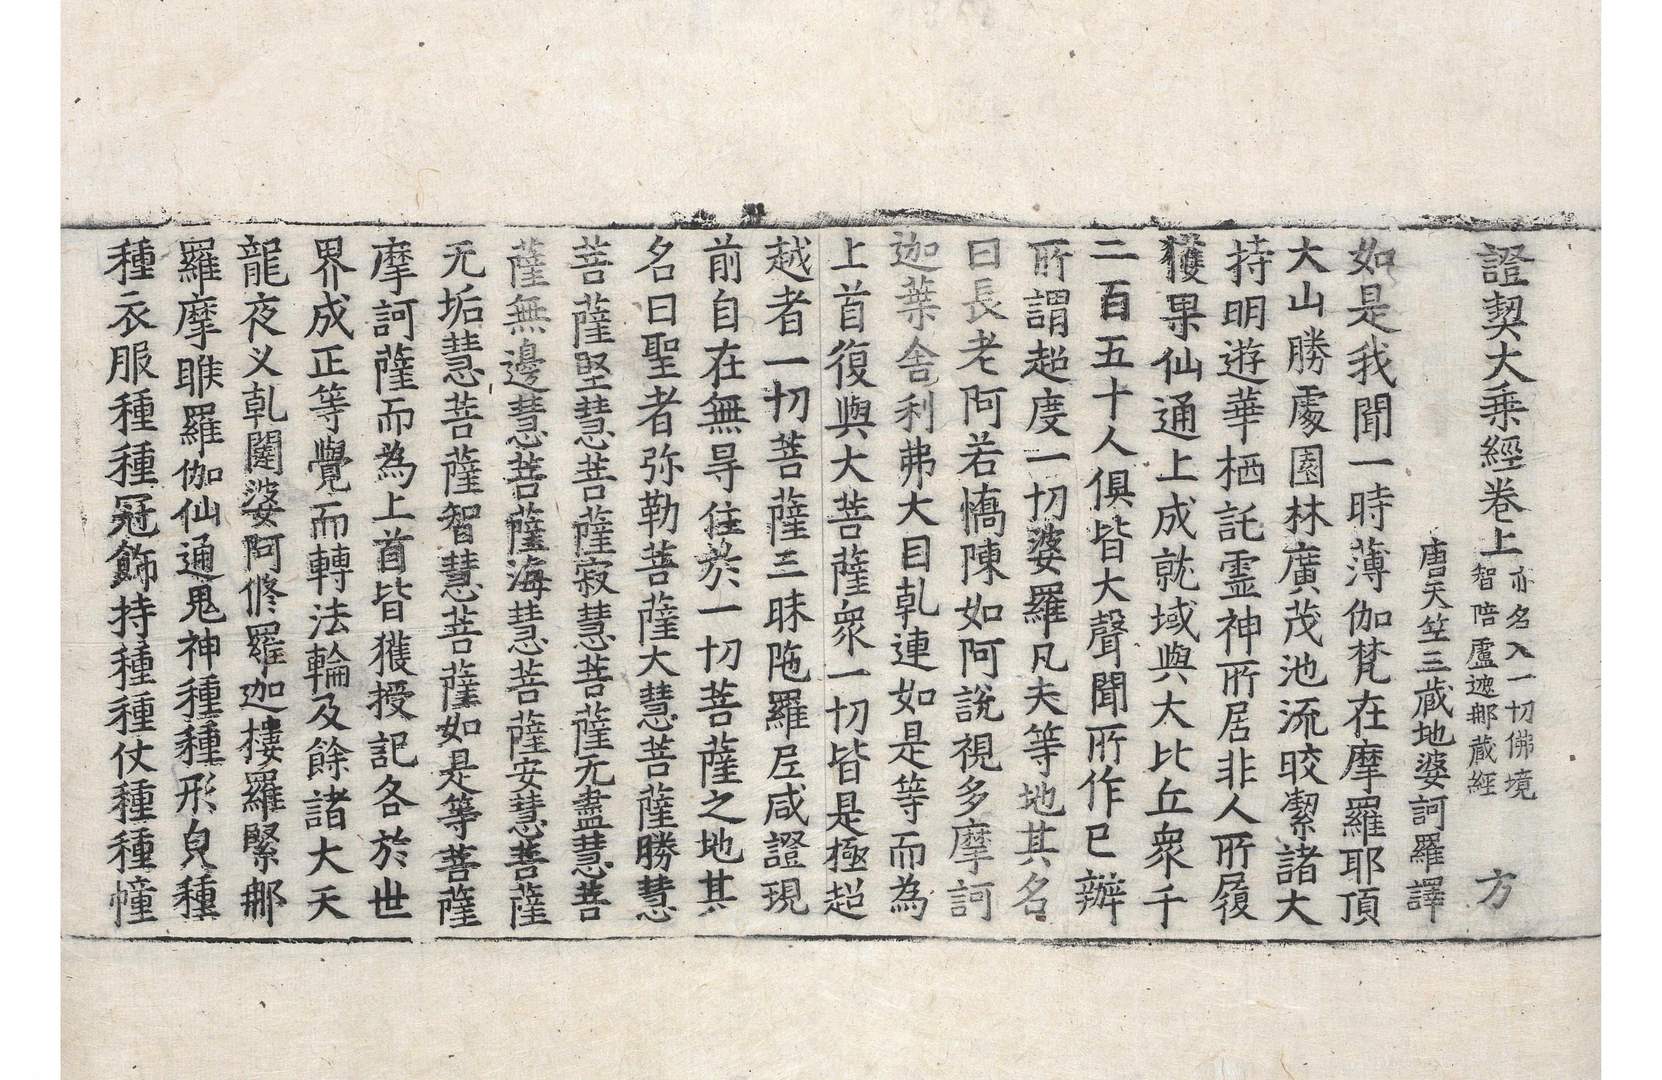 證契大乘經卷上 亦名入一切佛境智陪盧遮那藏經 方
唐天竺三藏地婆訶羅譯
如是我聞一時薄伽梵在摩羅耶頂
大山勝處園林廣茂池流皎潔諸大
持明遊華栖託靈神所居非人所履
獲果仙通上成就域與大比丘衆千
二百五十人俱皆大聲聞所作已辦
所謂超度一切婆羅凡夫等地其名
曰長老阿若憍陳如阿說視多摩訶
迦葉舍利弗大目乹連如是等而為
上首復與大菩薩衆一切皆是極超
越者一切菩薩三昧陁羅尼咸證現
前自在無㝵住於一切菩薩之地其
名曰聖者弥勒菩薩大慧菩薩勝慧
菩薩堅慧菩薩寂慧菩薩无盡慧菩
薩無邊慧菩薩海慧菩薩安慧菩薩
无垢慧菩薩智慧菩薩如是等菩薩
摩訶薩而為上首皆獲授記各於世
界成正等覺而轉法輪及餘諸大天
龍夜义乹闥婆阿修羅迦樓羅緊那
羅摩睺羅伽仙通鬼神種種形皃種
種衣服種種冠飾持種種仗種種幢